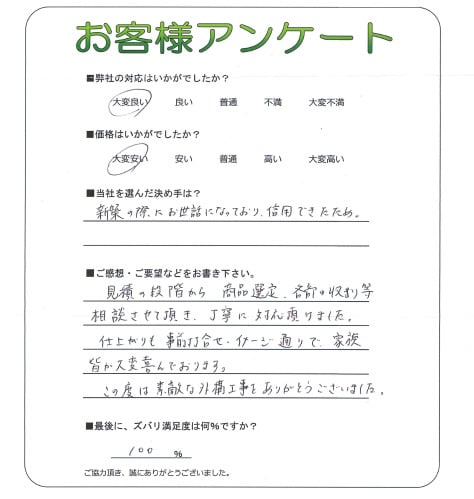 お客様アンケート
■弊社の対応はいかがでしたか？
大変良い 良い 普通 不満 大変不満
■価格はいかがでしたか？
大変安い 安い 普通 高い 大変高い
■当社を選んだ決め手は？
新築の際にお世話になっており、信用できたため。
■ご感想・ご要望などをお書き下さい。
見積の段階から 商品選定、各部の収まり等
相談させて頂き、丁寧に対応頂けました。
仕上がりも 事前打合せ・イメージ通りで、家族
皆が大変喜んでおります。
この度は素敵な外構工事をありがとうございました。
■最後に、ズバリ満足度は何％ですか？
100 ％
ご協力頂き、誠にありがとうございました。